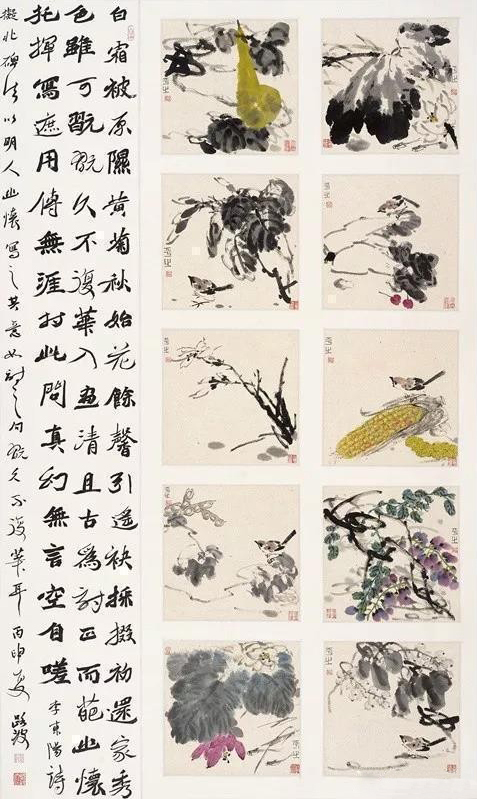 白霜被原隰黃菊秋始花餘馨引遙袂採掇初還家秀
色雖可翫翫久不復華入画清且古為詩正而葩幽懷
托揮寫遮用傳無涯對此問真幻無言空自嗟 李東陽詩
擬北碑法以明人幽懷寫之其意如詩之句翫久不復華耳 丙申夏 路波